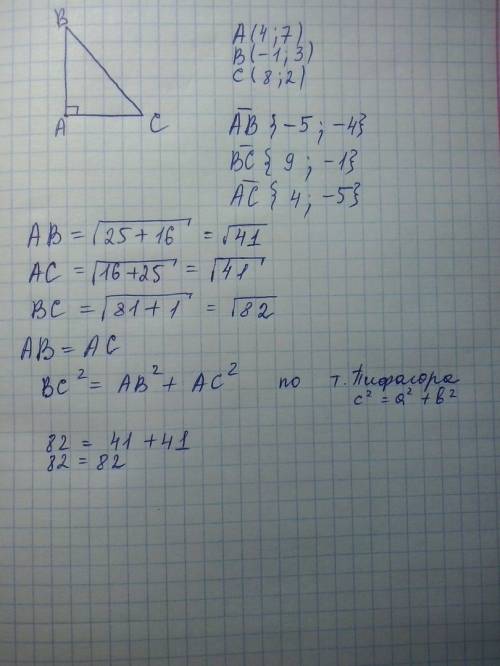 B
A
C
A(4;7)
B(-1;3)
C(8;2)
AB̅ {-5; -4}
BC̅ {9; -1}
AC̅ {4; -5}
AB = √25+16 = √41
AC = √16+25 = √41
BC = √81+1 = √82
AB = AC
BC² = AB² + AC² по т. Пифагора
c² = a² + b²
82 = 41 + 41
82 = 82